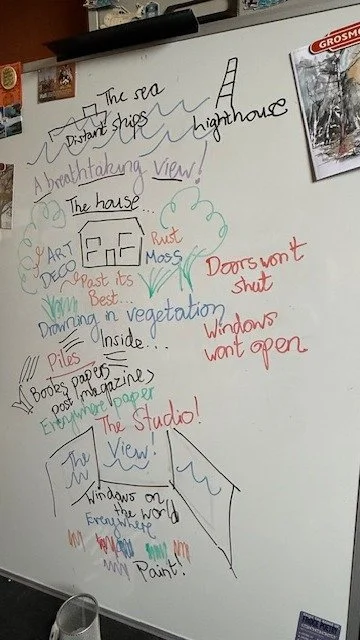 The sea
Distant ships
lighthouse
A breathtaking view!
The house...
ART
DECO
Rust
Moss
Past its
Best...
Doors won't
shut
Drowning in vegetation
Windows
wont open
Inside...
Piles
Books papers
post magazines
Everywhere paper
The Studio!
The
View!
Windows on
the world
Everywhere
Paint!
GROSMO